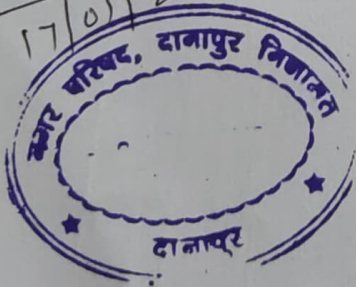 17/01/
नगर परिषद, दानापुर निजामत
दानापुर